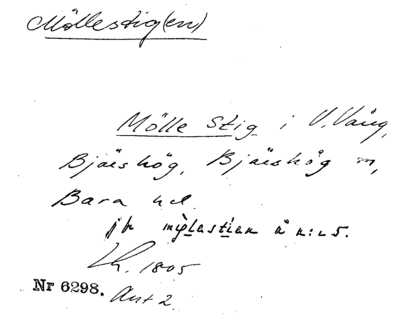 Möllestig(en)
Mölle Stig i V. Vång,
Bjärshög, Bjärshög sn,
Bara hd.
jfr møłastian å n:r 5.
Lh. 1805
Nr 6298. Akt 2